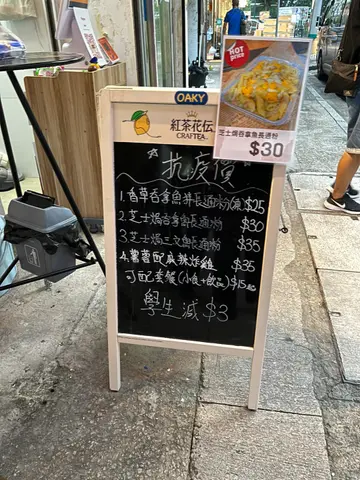 OAKY
紅茶花伝
CRAFTEA
HOT
PRICE
芝士焗吞拿魚長通粉
$30
抗疫價
1. 香草吞拿魚丼長通粉 $25
2. 芝士焗吞拿魚長通粉 $30
3. 芝士焗三文魚長通粉 $35
4. 薯蓉配麻辣炸雞 $35
可配套餐(小食+飲品) $15起
學生減 $3